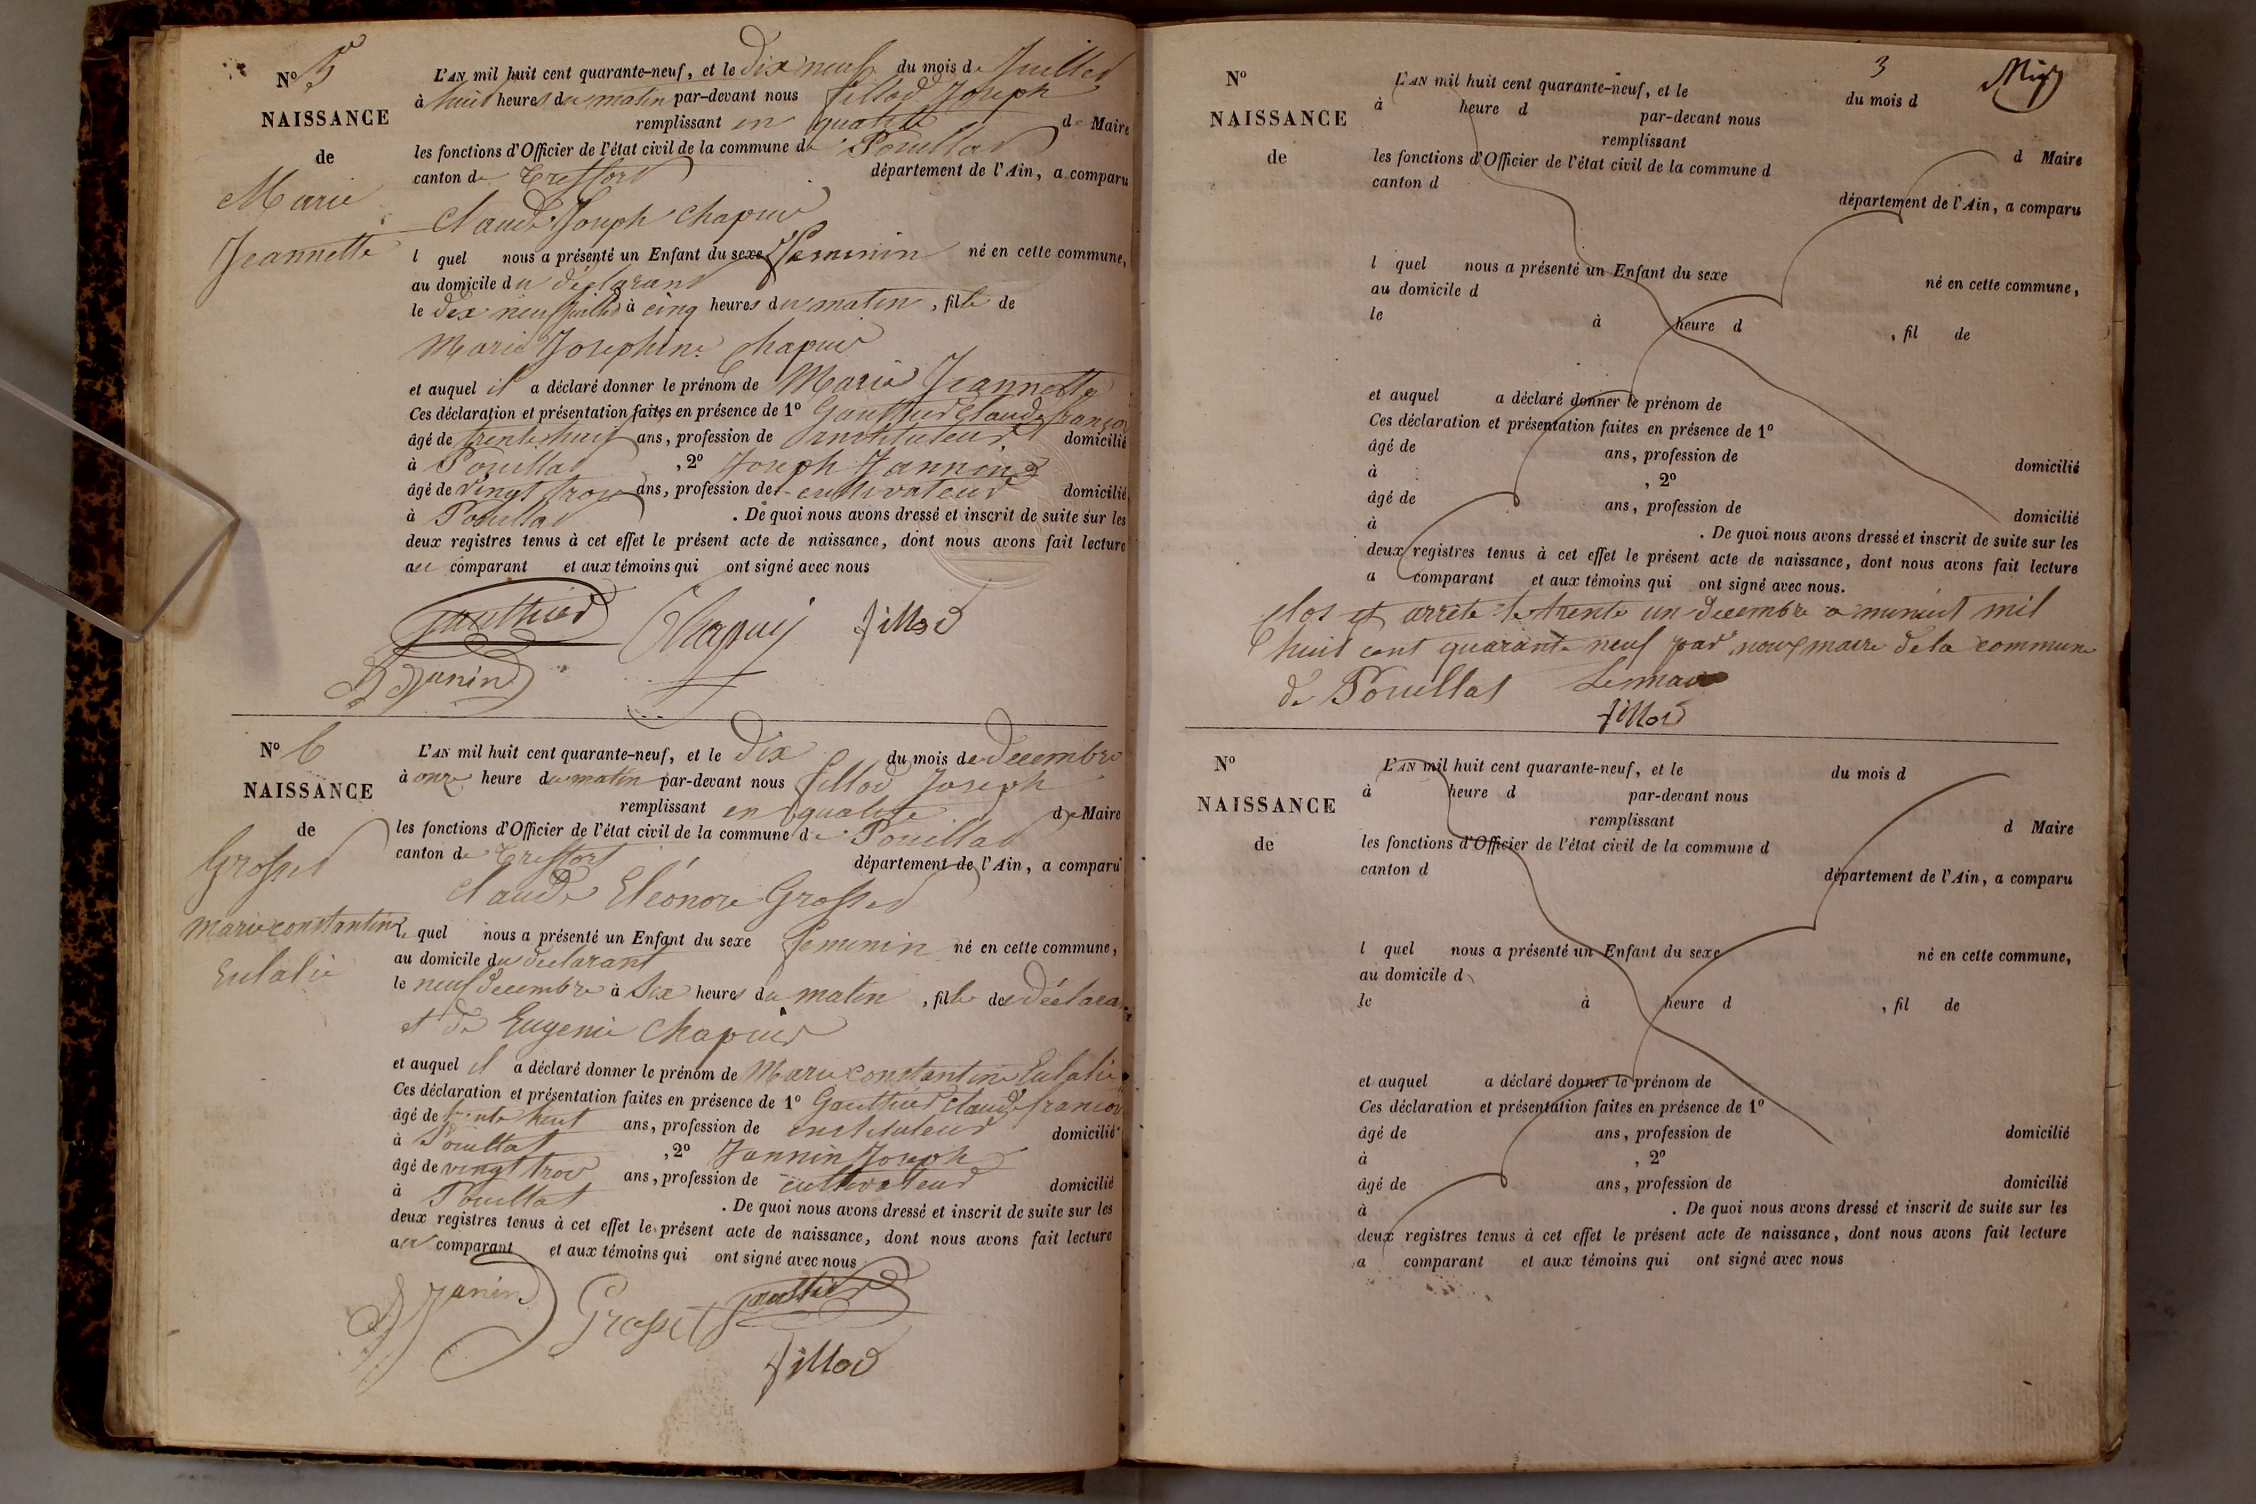 N° 5
NAISSANCE
de
Marie
Jeannette
L'AN mil huit cent quarante-neuf, et le dix neuf du mois de Juillet
à huit heures du matin par-devant nous fillod Joseph
remplissant en qualité de Maire
les fonctions d'Officier de l'état civil de la commune de Pouillat
canton de Treffort département de l'Ain, a comparu
Claude Joseph Chapuis
l quel nous a présenté un Enfant du sexe feminin né en cette commune,
au domicile du déclarant
le dix neuf juillet à cinq heures du matin, fille de
Marie Josephine Chapuis
et auquel il a déclaré donner le prénom de Marie Jeannette
Ces déclaration et présentation faites en présence de 1° Gauthier Claude françois
âgé de trente huit ans, profession de instituteur domicilié
à Pouillat, 2° Joseph Jannin
âgé de vingt trois ans, profession de cultivateur domicilié
à Pouillat. De quoi nous avons dressé et inscrit de suite sur les
deux registres tenus à cet effet le présent acte de naissance, dont nous avons fait lecture
au comparant et aux témoins qui ont signé avec nous
Gauthier Chapuis fillod
Janin
N° 6
NAISSANCE
de
Grosset
Marie constantine
Eulalie
L'AN mil huit cent quarante-neuf, et le dix du mois de decembre
à onze heure du matin par-devant nous fillod Joseph
remplissant en qualité de Maire
les fonctions d'Officier de l'état civil de la commune de Pouillat
canton de Treffort département de l'Ain, a comparu
Claude Eléonore Grosset
le quel nous a présenté un Enfant du sexe feminin né en cette commune,
au domicile du déclarant
le neuf decembre à six heures du matin, fille de déclarant
et de Eugenie Chapuis
et auquel il a déclaré donner le prénom de Marie constantine Eulalie
Ces déclaration et présentation faites en présence de 1° Gauthier claude francois
âgé de trente huit ans, profession de instituteur domicilié
à Pouillat, 2° Jannin Joseph
âgé de vingt trois ans, profession de cultivateur domicilié
à Pouillat. De quoi nous avons dressé et inscrit de suite sur les
deux registres tenus à cet effet le présent acte de naissance, dont nous avons fait lecture
au comparant et aux témoins qui ont signé avec nous
Janin Grosset Gauthier
fillod
3
N°
NAISSANCE
de
L'AN mil huit cent quarante-neuf, et le du mois d
à heure d par-devant nous
remplissant d Maire
les fonctions d'Officier de l'état civil de la commune d
canton d département de l'Ain, a comparu
l quel nous a présenté un Enfant du sexe né en cette commune,
au domicile d
le à heure d , fil de
et auquel a déclaré donner le prénom de
Ces déclaration et présentation faites en présence de 1°
âgé de ans, profession de domicilié
à , 2°
âgé de ans, profession de domicilié
à . De quoi nous avons dressé et inscrit de suite sur les
deux registres tenus à cet effet le présent acte de naissance, dont nous avons fait lecture
a comparant et aux témoins qui ont signé avec nous.
clos et arrete le trente un decembre a minuit mil
huit cent quarante neuf par nous maire de la commune
de Pouillat Le maire
fillod
N°
NAISSANCE
de
L'AN mil huit cent quarante-neuf, et le du mois d
à heure d par-devant nous
remplissant d Maire
les fonctions d'Officier de l'état civil de la commune d
canton d département de l'Ain, a comparu
l quel nous a présenté un Enfant du sexe né en cette commune,
au domicile d
le à heure d , fil de
et auquel a déclaré donner le prénom de
Ces déclaration et présentation faites en présence de 1°
âgé de ans, profession de domicilié
à , 2°
âgé de ans, profession de domicilié
à . De quoi nous avons dressé et inscrit de suite sur les
deux registres tenus à cet effet le présent acte de naissance, dont nous avons fait lecture
a comparant et aux témoins qui ont signé avec nous